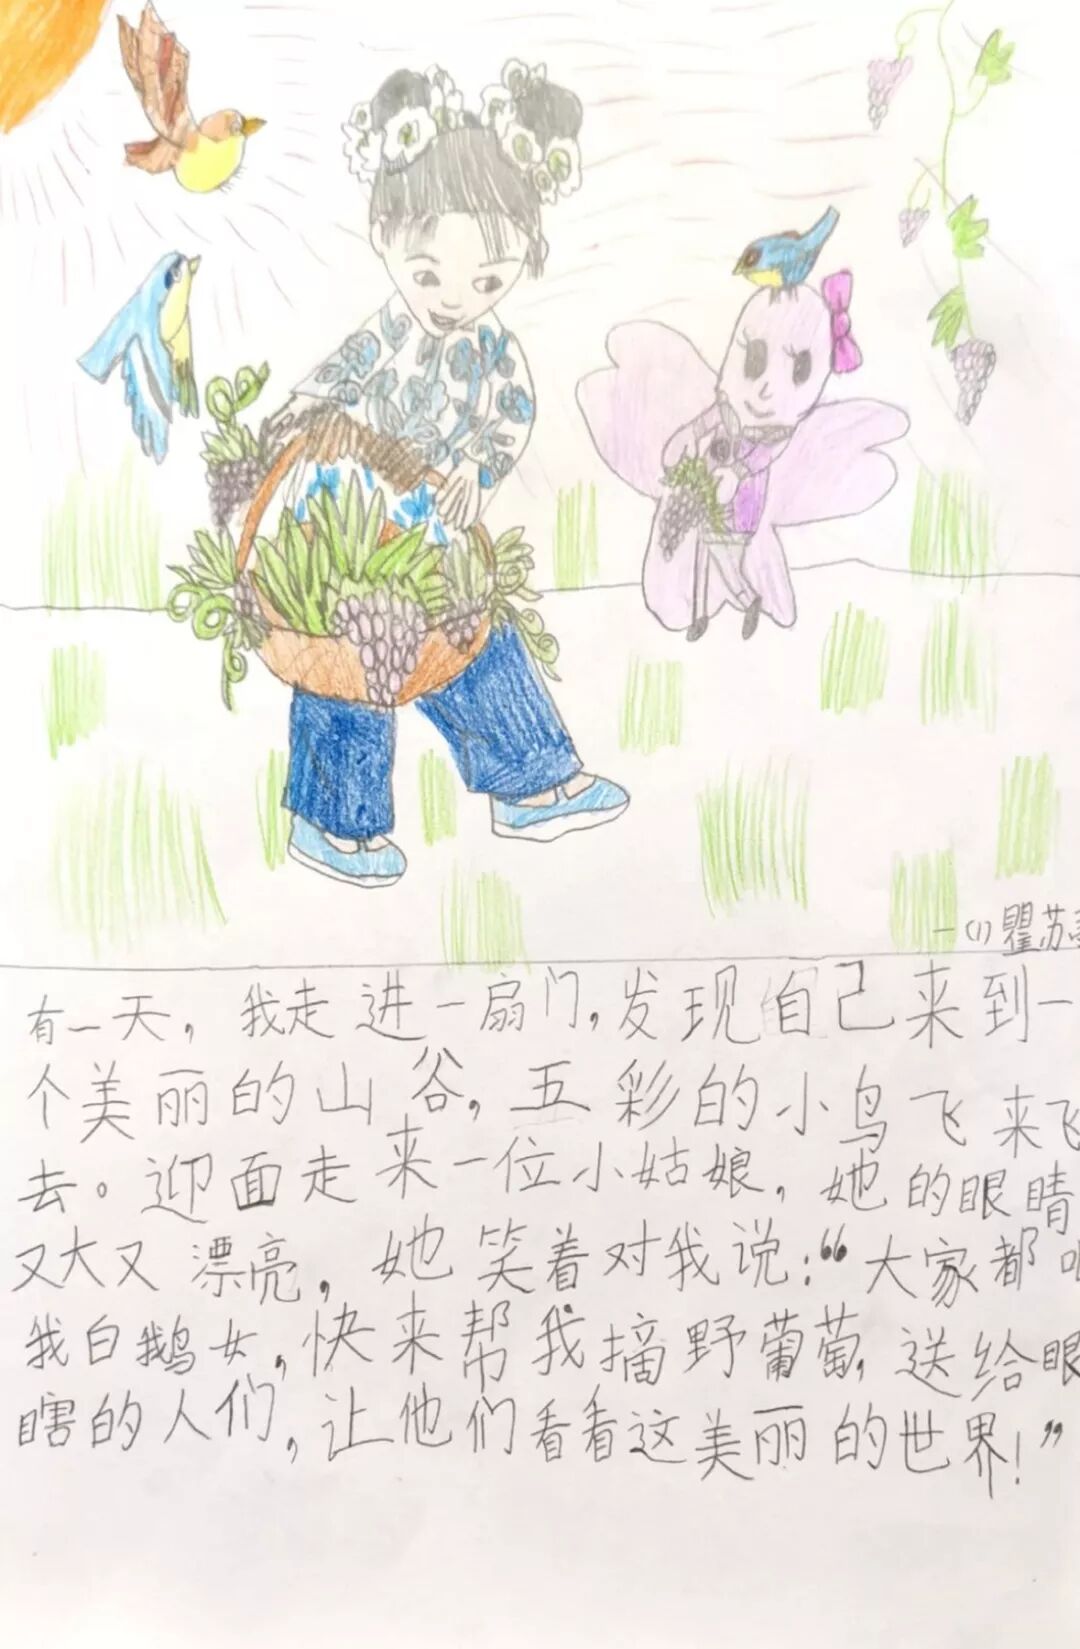 一(1)瞿苏
有一天，我走进一扇门，发现自己来到一
个美丽的山谷，五彩的小鸟飞来飞
去。迎面走来一位小姑娘，她的眼睛
又大又漂亮，她笑着对我说：“大家都
我白鹅女，快来帮我摘野葡萄，送给眼
瞎的人们，让他们看看这美丽的世界！”